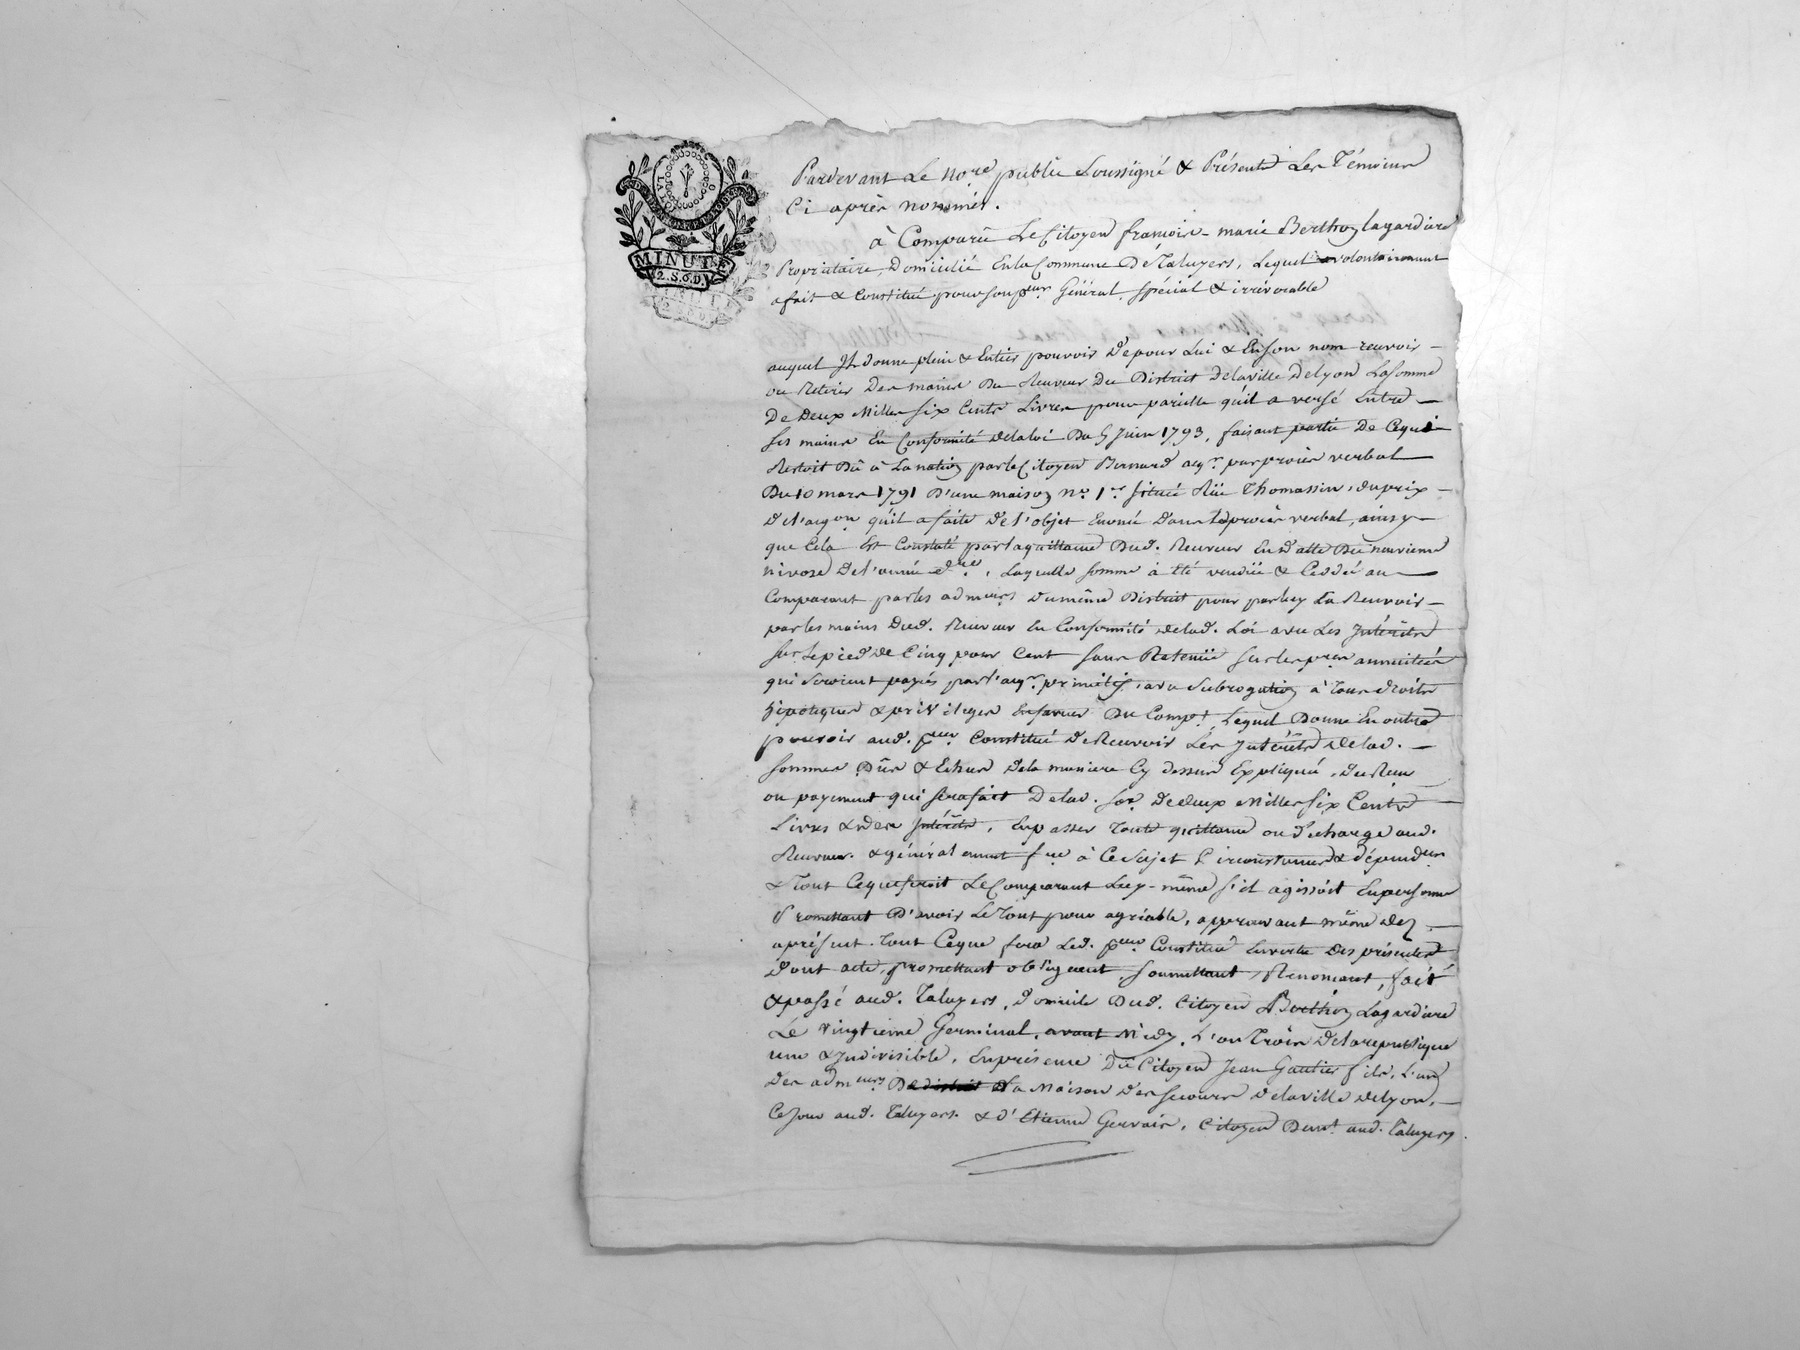 LA LOI
MINUTE
2.S.6.D.
Pardevant Le no.re public Soussigné & Présents Les Témoins
Ci après nommés.
à Comparû Le Citoyen francois-marie Berthoz Lagardiere
Propriétaire, Domicilié En la Commune De Taluyers, Lequel volontairement
a fait & Constitué pour son p.eur Général, Spécial & irrévocable
auquel Il donne plein & Entier pouvoir De pour Lui & En Son nom recevoir
ou Retirer Des mains Du Receveur Du District De la ville De Lyon La Somme
De Deux Mille Six Cents Livres pour parielle qu'il a versé Entre
Ses mains En Conformité de la loi Du 5 Juin 1793, faisant partie De Ce qui
Restoit Dû à La nation par le Citoyen Bernard aqr. par procès verbal
Du 10 mars 1791 D'une maison no. 1er Située Rüe Thomassin, du prix
De l'aqon qu'il a faite De l'objet Enoncé Dans Led procès verbal, ainsy
que Cela Est Constaté par la quittance Dud. Receveur En Datte Du neuvieme
nivose De l'année d.re, Laquelle Somme à Eté vendüe & Ceddée au
Comparant par les admeurs Du même District pour par luy La Recevoir
par les mains Dud. Receveur En Conformité de lad. Loi avec Les Intérêts
Sur le pied de Cinq pour Cent Sans Retenüe Sur les pres annuitées
qui Seroient payés par l'aqr. primitif, avec Subrogation à Tous droits
hipoteques & privileges En faveur Du Compt. Lequel Donne En outre
pouvoir aud. p.eur Constitué De Recevoir Les Intérêts de lad.
Somme Dûs & Echus De la maniere Cy dessus Expliqué, du Reçu
ou payement qui Sera fait De lad. Somme De deux Mille Six Cents
Livres & des Intérêts, En passer Toute quittance ou décharge aud.
Receveur. & généralement f.re à Ce Sujet Circonstances & dépend.ces
& Tout Ce que feroit Le Comparant Luy-même S'il agissoit En personne
Promettant D'avoir Le Tout pour agréable, approuvant même dez
aprésent. Tout Ce que fera Led. p.eur Constitué En vertu Des présentes
Dont acte, promettant obligeant, Soumettant, Renonçant, fait
& passé aud. Taluyers, Domicile Dud. Citoyen Berthoz Lagardiere
Le vingtieme Germinal, avant Midy, L'an Trois De la republique
une & Indivisible, En présence Du Citoyen Jean Gautier fils, L'un
Des admeurs De la Maison Des Secours De la ville De Lyon,
Ce Jour aud. Taluyers. & d'Etienne Gervais, Citoyen Demt. aud. Taluyers.